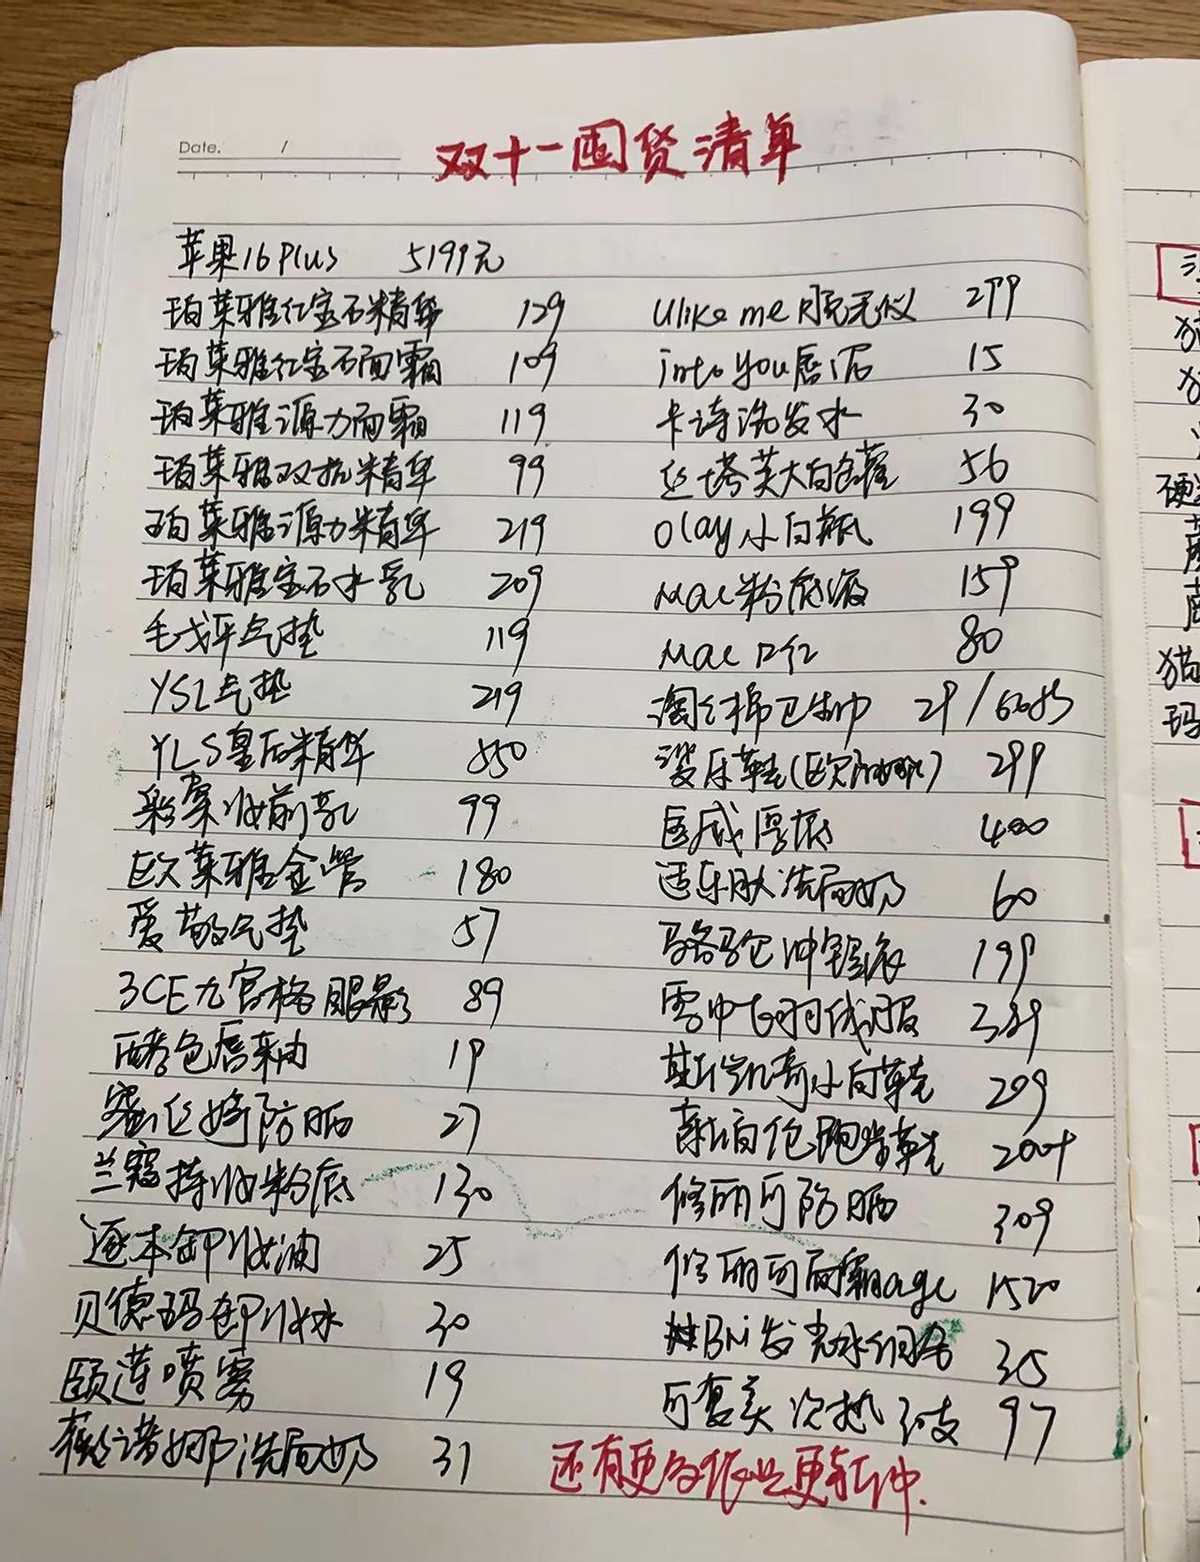 Date. /
双十一囤货清单
苹果16 Plus 5199元
珀莱雅红宝石精华 129
珀莱雅红宝石面霜 109
珀莱雅源力面霜 119
珀莱雅双抗精华 99
珀莱雅源力精华 219
珀莱雅宝石水乳 209
毛戈平气垫 119
YSL气垫 219
YLS皇后精华 850
彩棠妆前乳 99
欧莱雅金管 180
爱敬气垫 57
3CE九宫格眼影 89
酵色唇釉 19
蜜丝婷防晒 27
兰蔻持妆粉底 130
逐本卸妆油 25
贝德玛卸妆水 30
颐莲喷雾 19
薇诺娜洗面奶 31
Ulike me脱毛仪 299
into you唇泥 15
卡诗洗发水 30
丝塔芙大白罐 56
Olay小白瓶 199
Mac粉底液 159
Mac口红 80
淘红棉卫生巾 29/
鞋( ) 299
匡威厚底 400
适乐肤洗面奶 60
骆驼冲锋衣 199
雪中飞羽绒服 389
斯凯奇小白鞋 209
新百伦跑步鞋 200+
修丽可防晒 309
修丽可面霜age 1520
发光水 35
可复美次抛30支 97
还有更多作业更新中.